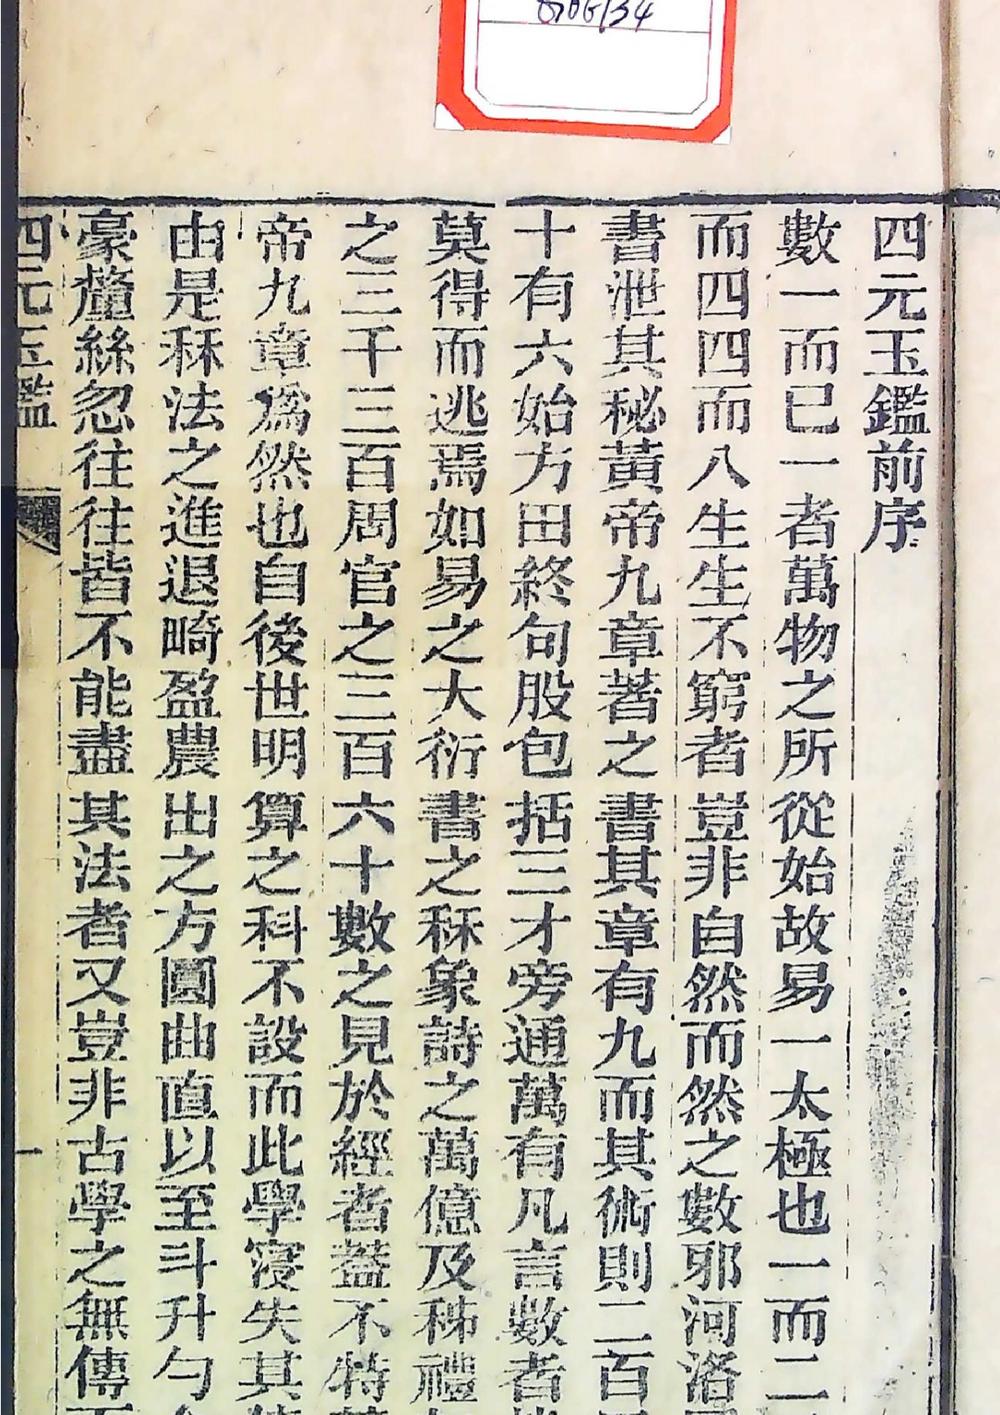 四元玉鑑前序
數一而已一者萬物之所從始故易一太極也一而二
而四四而八生生不窮者豈非自然而然之數邪河洛
書泄其秘黃帝九章著之書其章有九而其術則二百
十有六始方田終句股包括三才旁通萬有凡言數者
莫得而逃焉如易之大衍書之秝象詩之萬億及秭禮
之三千三百周官之三百六十數之見於經者蓋不特
帝九章爲然也自後世明算之科不設而此學寖失其
由是秝法之進退畸盈農出之方圓曲直以至斗升勺
豪釐絲忽往往皆不能盡其法者又豈非古學之無傳
四元玉鑑
一